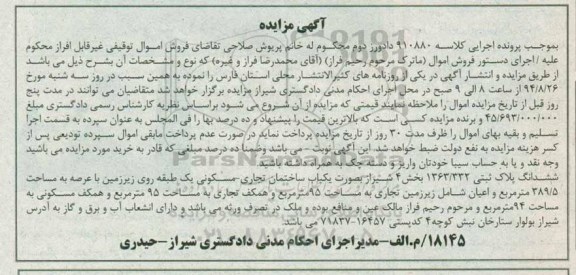 آگهی مزایده
بموجب پرونده اجرایی کلاسه ۹۱۰۸۸۰ دادورز دوم محکوم له خانم پریوش صلاحی تقاضای فروش اموال توقیفی غیرقابل افراز محکوم
علیه / اجرای دستور فروش اموال (ماترک مرحوم رحیم فراز) (آقای محمدرضا فراز و غیره) که نوع و مشخصات آن بشرح ذیل می باشد
از طریق مزایده و انتشار آگهی در یکی از روزنامه های کثیرالانتشار محلی استان فارس را نموده به همین سبب در روز سه شنبه مورخ
۹۴/۸/۲۶ از ساعت ۸ الی ۹ صبح در محل اجرای احکام مدنی دادگستری شیراز مزایده برگزار خواهد شد متقاضیان می توانند در مدت پنج
روز قبل از تاریخ مزایده اموال را ملاحظه نمایند قیمتی که مزایده از آن شروع می شود براساس نظریه کارشناس رسمی دادگستری مبلغ
۴۵/۶۹۳/۰۰۰/۰۰۰ و برنده مزایده کسی است که بالاترین قیمت را پیشنهاد و ده درصد بها را فی المجلس به عنوان سپرده به قسمت اجرا
تسلیم و بقیه بهای اموال را ظرف مدت ۳۰ روز از تاریخ مزایده پرداخت نماید در صورت عدم پرداخت مابقی اموال سپرده تودیعی پس از
کسر هزینه مزایده به نفع دولت ضبط خواهد شد. این آگهی نوبت - می باشد وضمنا ده درصد مبلغی که قادر به خرید مورد مزایده می باشید
وجه نقد و یا به حساب سیبا خودتان واریز و دسته چک
ششدانگ پلاک ثبتی ۱۳۶۳/۳۳۲ بخش ۴ شیراز بصورت یکباب ساختمان تجاری-مسکونی یک طبقه روی زیرزمین با عرصه به مساحت
۳۸۹/۵ مترمربع و اعیان شامل زیرزمین تجاری به مساحت ۹۵مترمربع و همکف تجاری به مساحت ۹۵ مترمربع و همکف مسکونی به
مساحت ۹۴مترمربع و مرحوم رحیم فراز مالک عین و منافع بوده و ملک در تصرف ورثه می باشد و دارای انشعاب آب و برق و گاز به آدرس
شیراز بولوار ستارخان نبش کوچه۴ کدپستی ۱۶۴۵۷-۷۱۸۳۷ می باشد.
۱۸۱۴۵/م.الف-مدیراجرای احکام مدنی دادگستری شیراز-حیدری